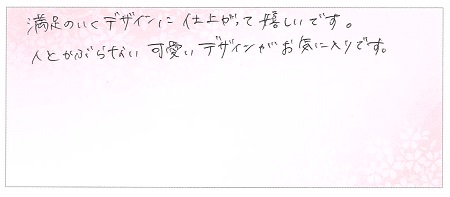 満足のいくデザインに仕上がって嬉しいです。
人とかぶらない可愛いデザインがお気に入りです。